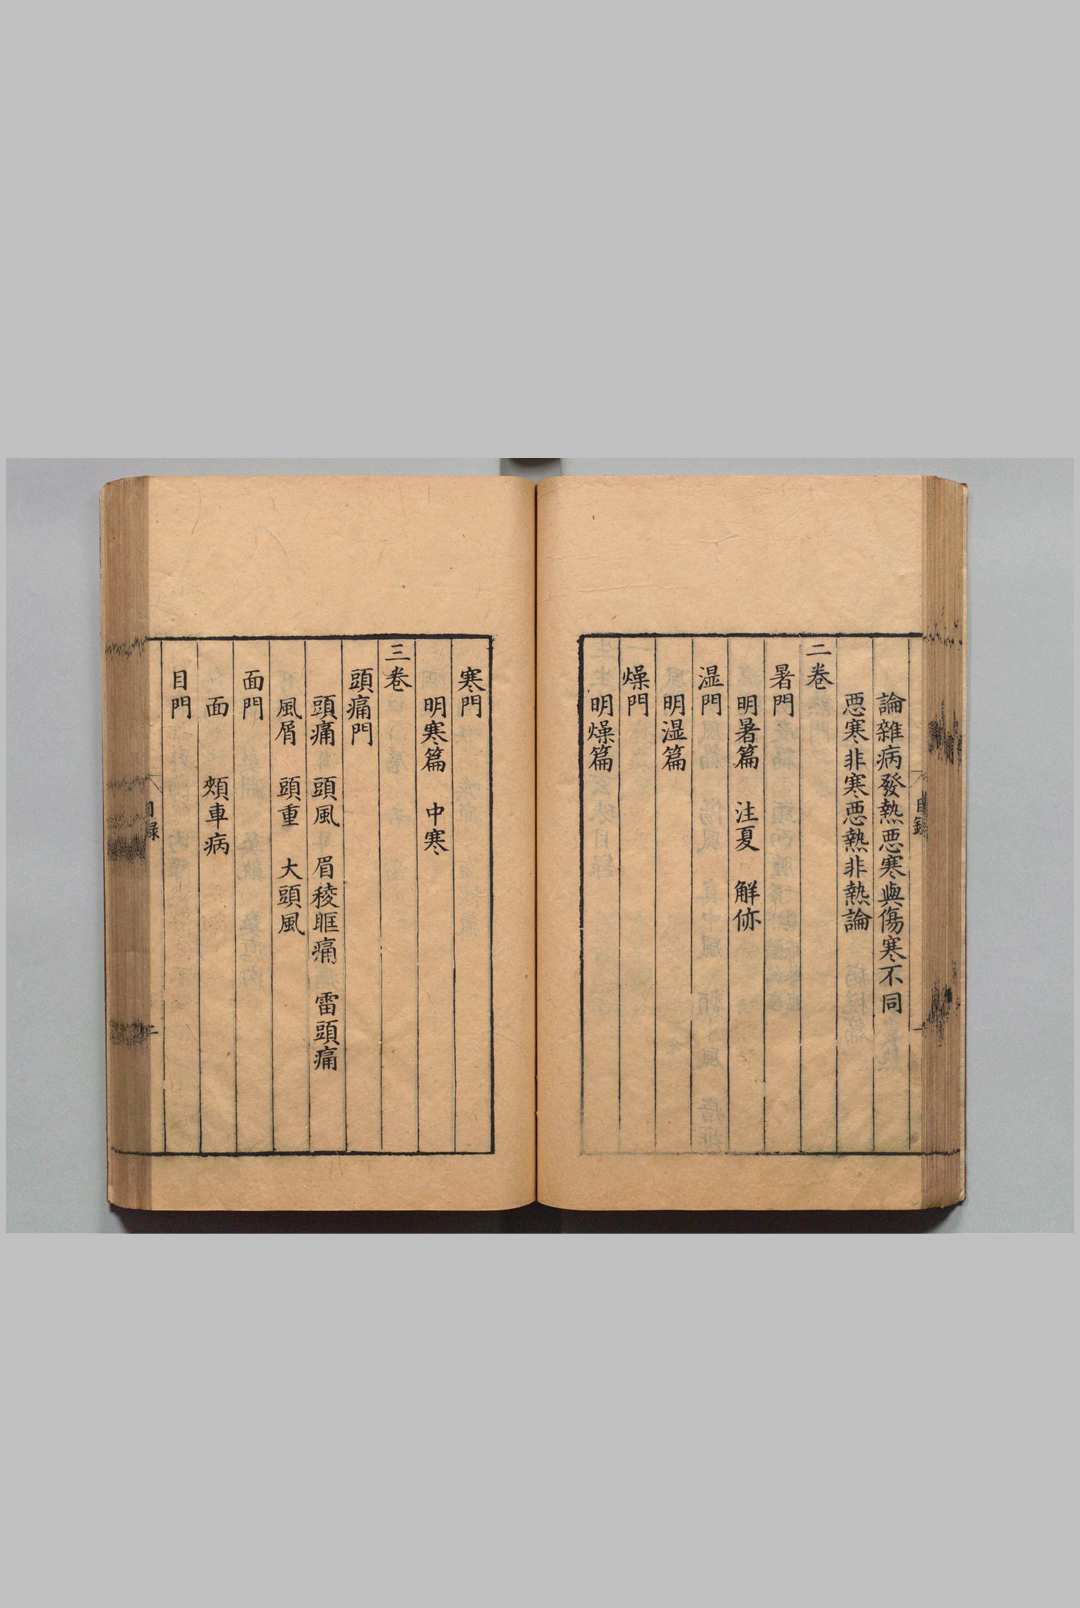 論雜病發熱悪寒與傷寒不同
悪寒非寒悪熱非熱論
二卷
暑門
明暑篇 注夏 解㑊
湿門
明湿篇
燥門
明燥篇
寒門
明寒篇 中寒
三卷
頭痛門
頭痛 頭風 眉稜眶痛 雷頭痛
風屑 頭重 大頭風
面門
面 頰車病
目門
目錄
目錄